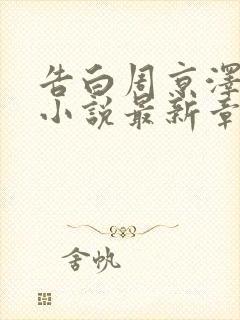 告白周京澤
小說最新章
舍帆